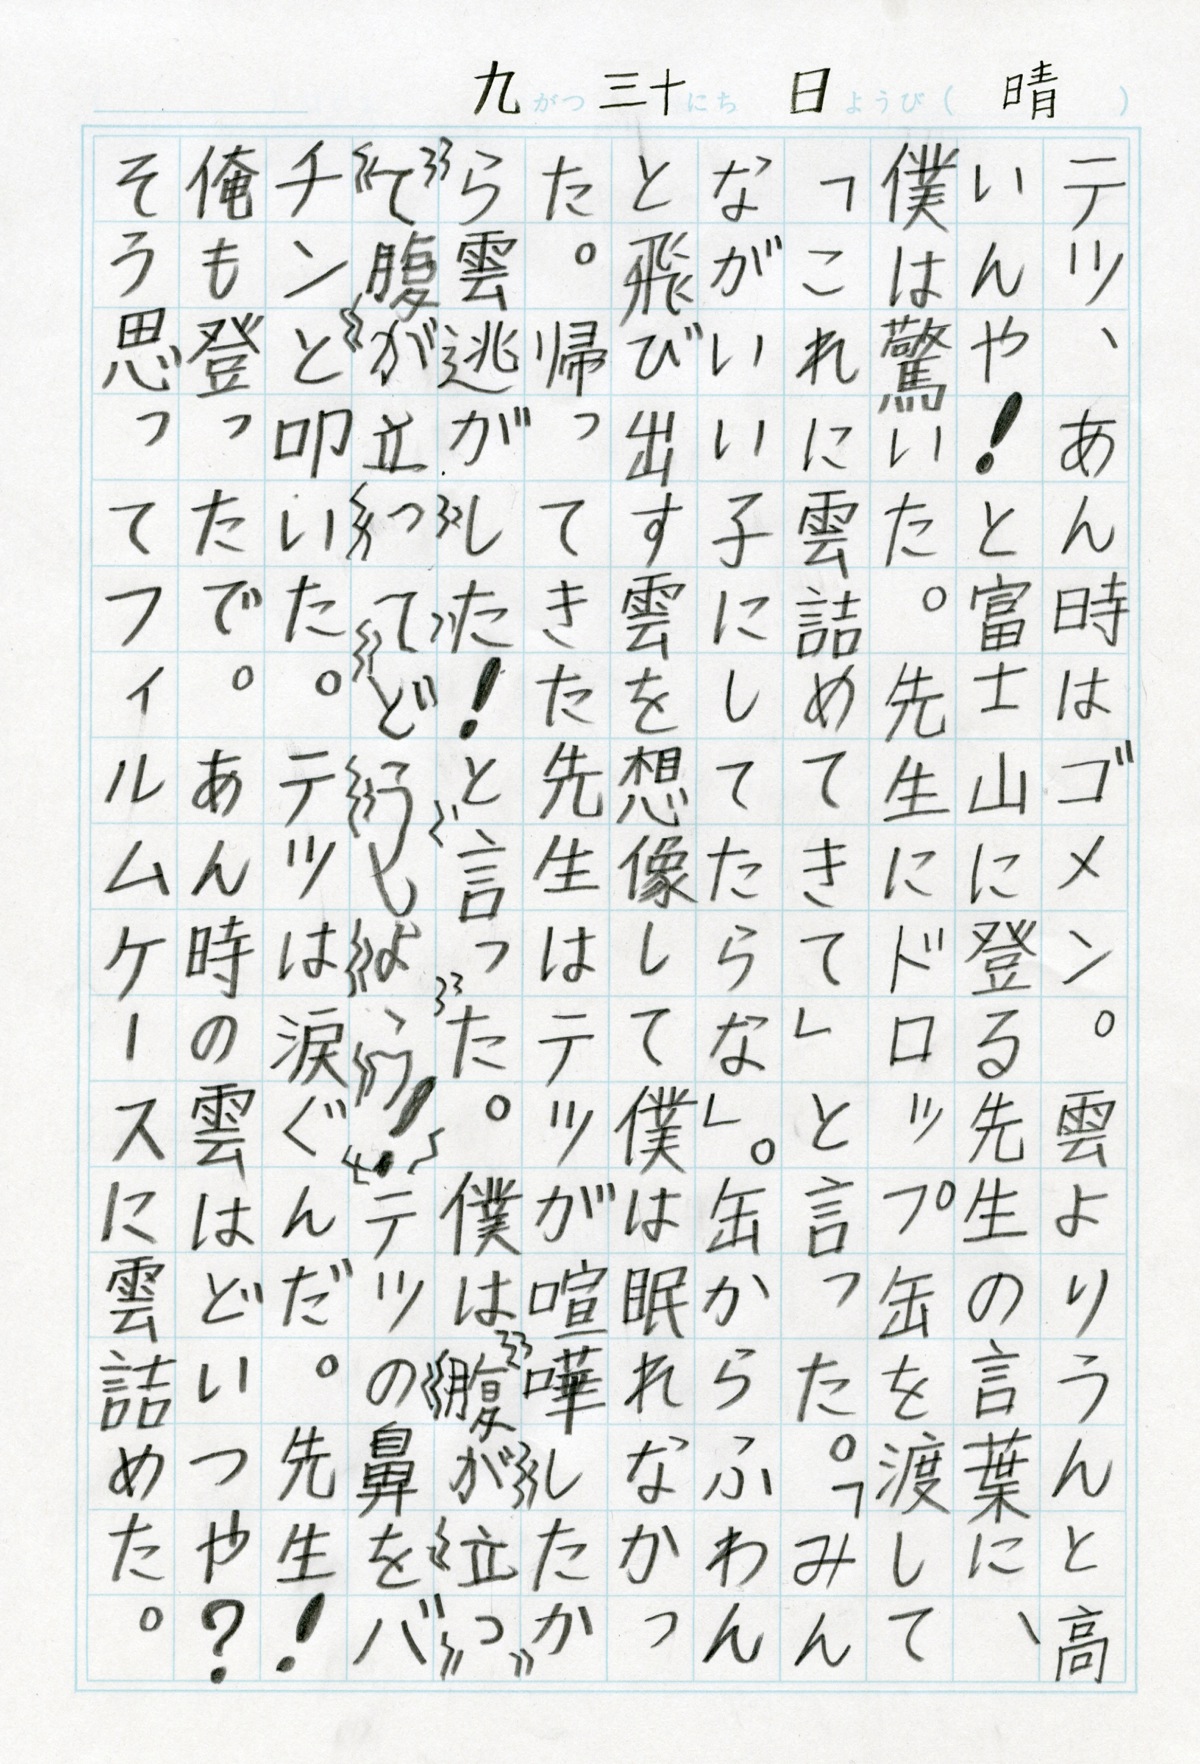 九がつ 三十にち 日ようび( 晴 )
テツ、あん時はゴメン。雲よりうんと高
いんや!と富士山に登る先生の言葉に、
僕は驚いた。先生にドロップ缶を渡して
「これに雲詰めてきて」と言った。「みん
ながいい子にしてたらな」。缶からふわん
と飛び出す雲を想像して僕は眠れなかっ
た。帰ってきた先生はテツが喧嘩したか
ら雲逃がした!と言った。僕は腹が立っ
て腹が立ってどうしよう!テツの鼻をバ
チンと叩いた。テツは涙ぐんだ。先生!
俺も登ったで。あん時の雲はどいつや?
そう思ってフィルムケースに雲詰めた。